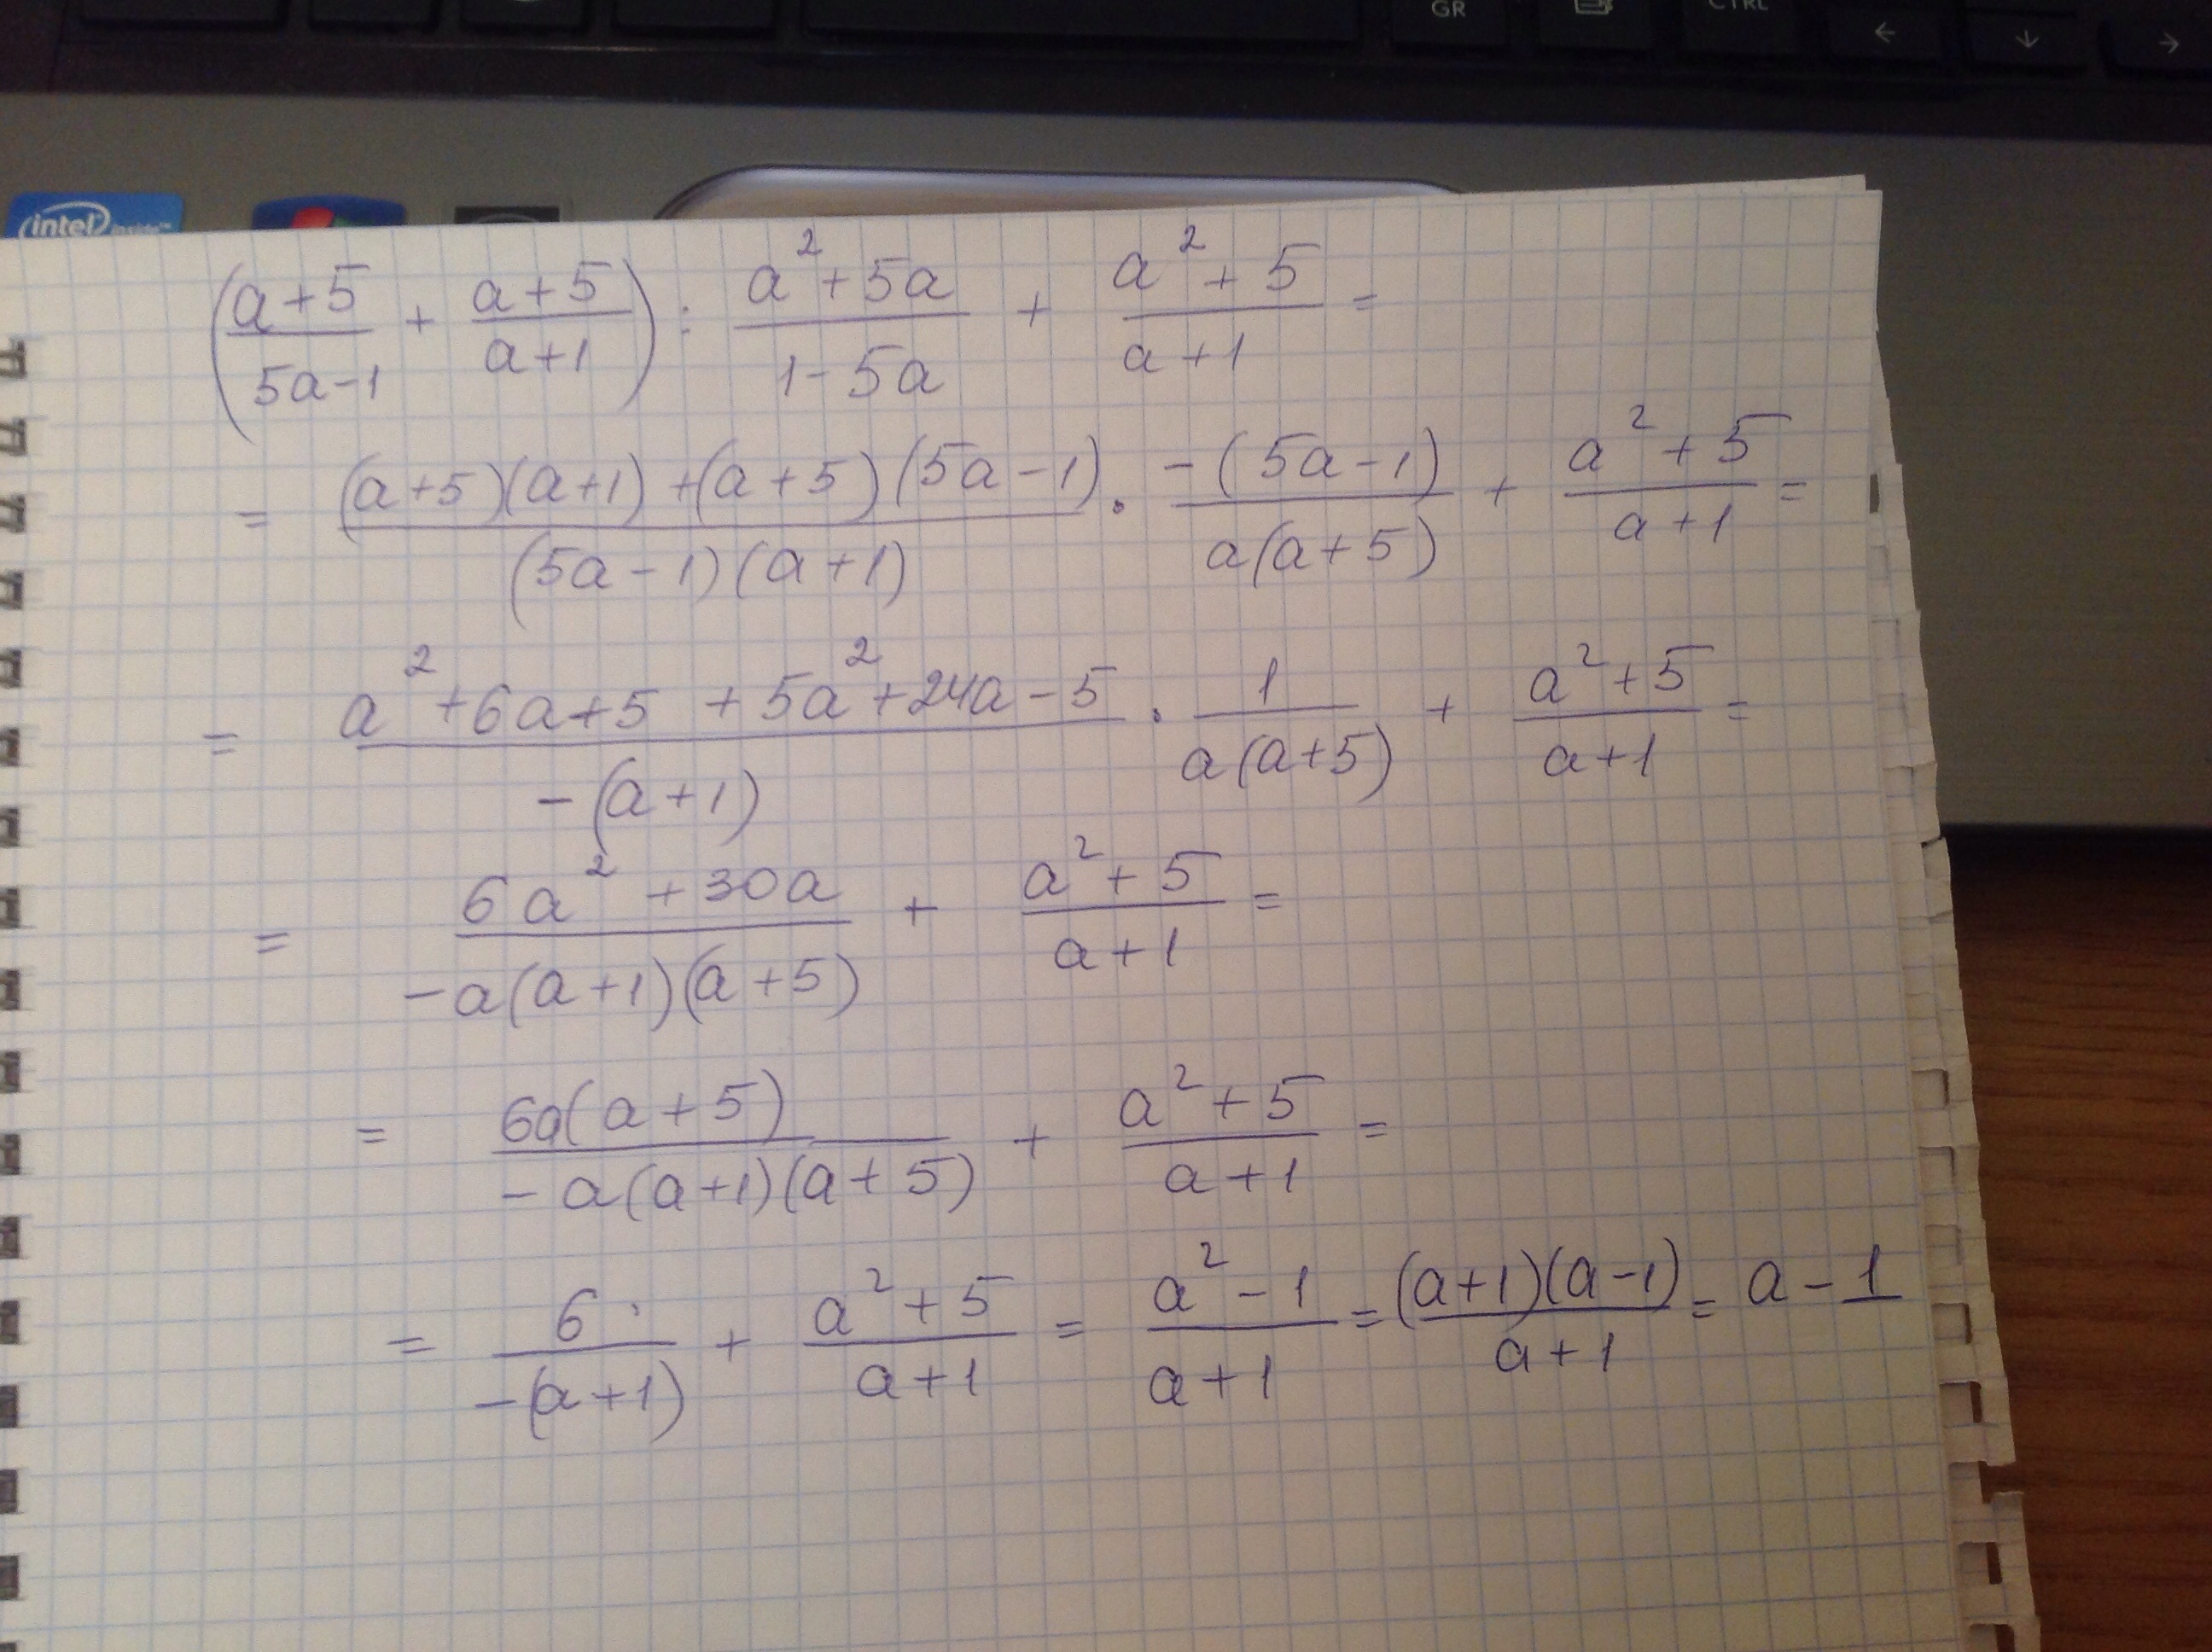 GR CTRL ← ↓ →
intel inside™
(a+5/5a-1 + a+5/a+1) : a²+5a/1-5a + a²+5/a+1 =
= (a+5)(a+1)+(a+5)(5a-1)/(5a-1)(a+1) · -(5a-1)/a(a+5) + a²+5/a+1 =
= a²+6a+5+5a²+24a-5/-(a+1) · 1/a(a+5) + a²+5/a+1 =
= 6a²+30a/-a(a+1)(a+5) + a²+5/a+1 =
= 6a(a+5)/-a(a+1)(a+5) + a²+5/a+1 =
= 6/-(a+1) + a²+5/a+1 = a²-1/a+1 = (a+1)(a-1)/a+1 = a-1